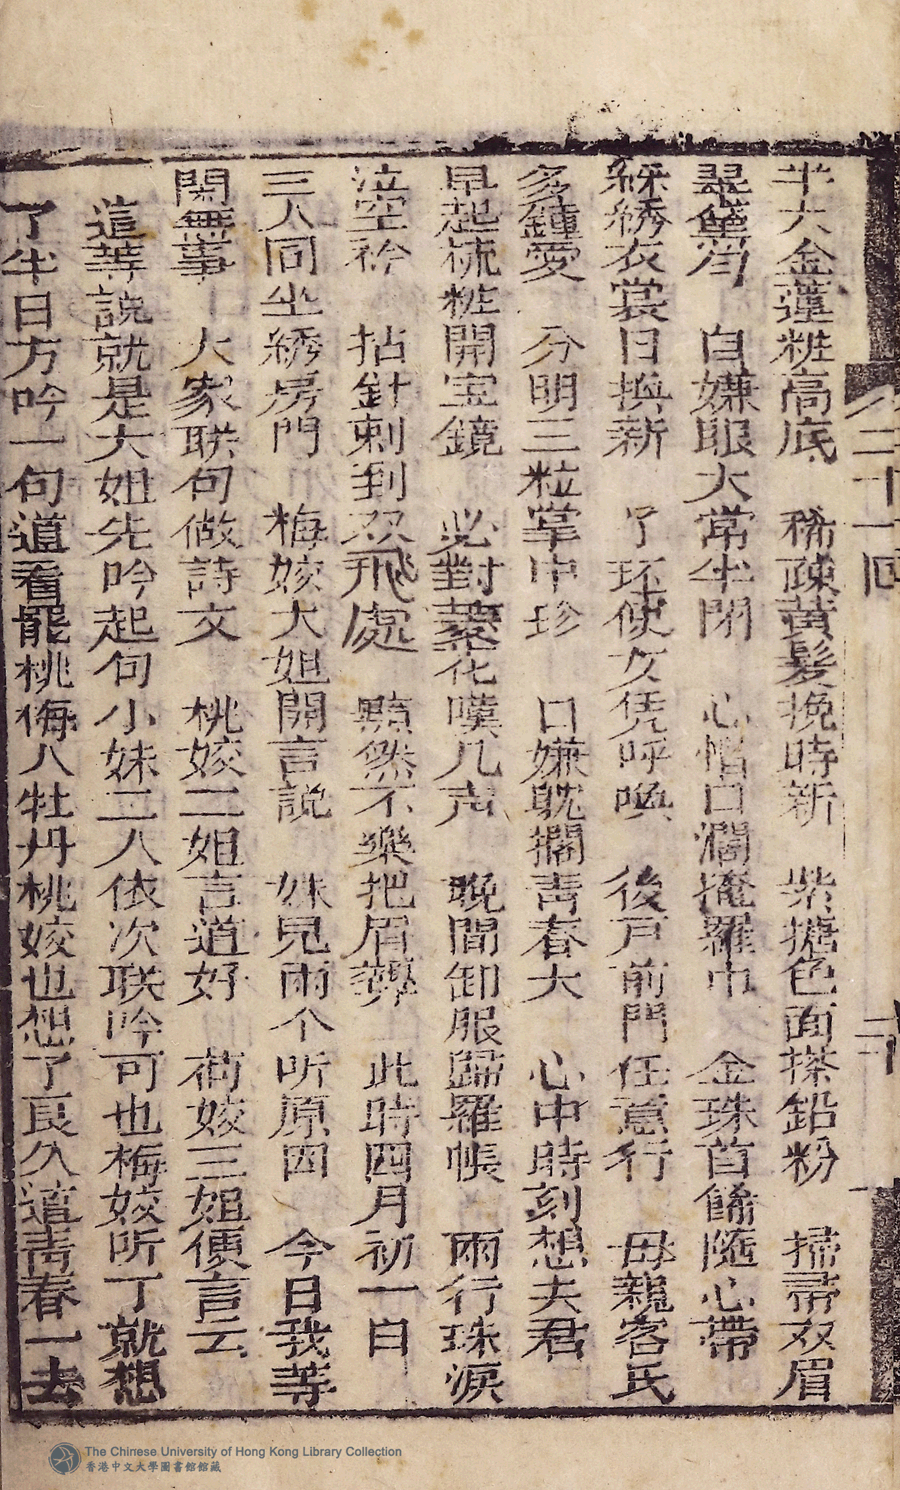 二十一回
二十
半大金蓮粧高底 稀疎黃髮挽時新 紫搪色面搽鉛粉 掃帚双眉
翠黛勻 白嫌眼大常半閉 心憎口濶掩羅巾 金珠首餙隨心帶
綵綉衣裳日換新 了环使女凭呼喚 後戸前門任意行 母親客氏
多鍾愛 分明三粒掌中珍 口嫌躭擱青春大 心中時刻想夫君
早起梳粧開宝鏡 必對菱花嘆几声 晚間卸服歸羅帳 雨行珠淚
泣空衿 拈針刺到双飛處 黯然不樂把眉顰 此時四月初一日
三人同坐綉房門 梅姣大姐開言説 妹兒兩个听原因 今日我等
閑無事 大家联句做詩文 桃姣二姐言道好 荷姣三姐便言云
這等説就是大姐先吟起句小妹二人依次联吟可也梅姣听了就想
了半日方吟一句道看罷桃梅人牡丹桃姣也想了良久道青春一去
The Chinese University of Hong Kong Library Collection
香港中文大學圖書館館藏